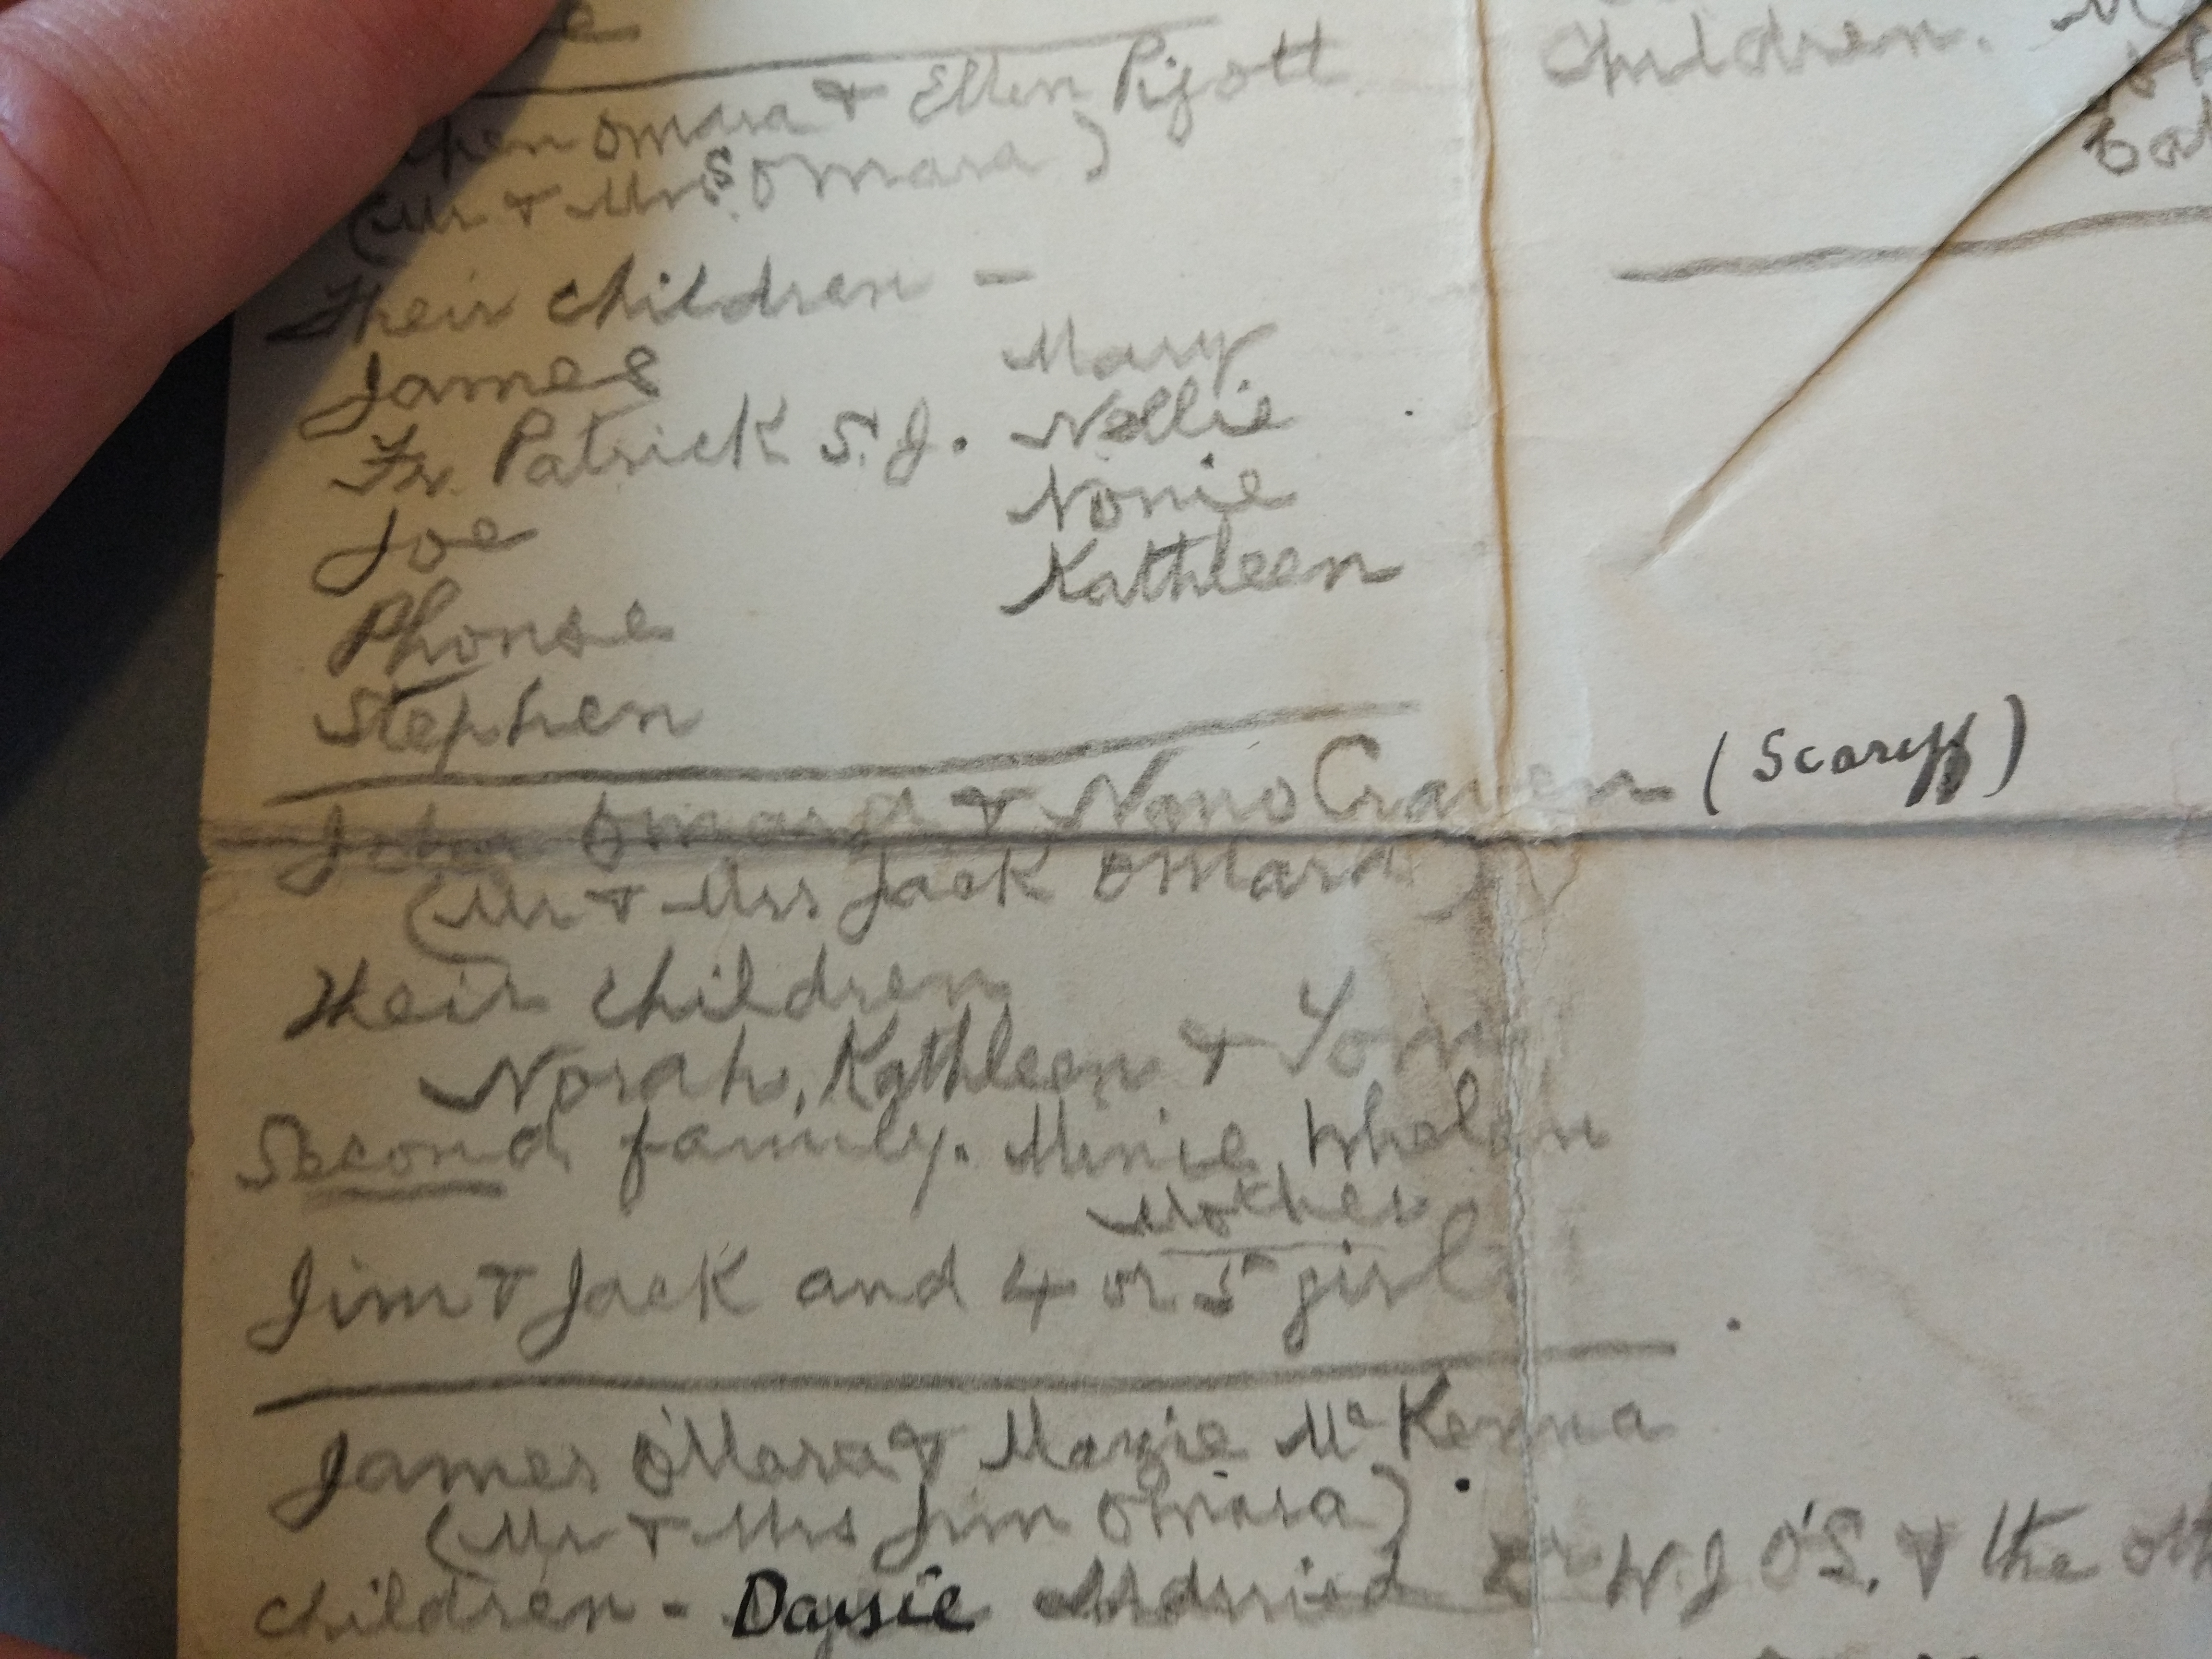 Omara & Ellen Pigott
(Mr & Mrs S. Omara)
Their children -
James
Fr. Patrick S.J.
Joe
Phonse
Stephen
Mary
Nellie
Nonie
Kathleen
John Omara & Nano Craven (Scariff)
(Mr & Mrs Jack Omara)
Their children
Norah, Kathleen &
Second family. Minie Whelan
Mother
Jim & Jack and 4 or 5 girls
James O'Mara & Mazie McKenna
(Mr & Mrs Jim Omara)
children - Daysie Married Dr W.J O'S. & the
Children.